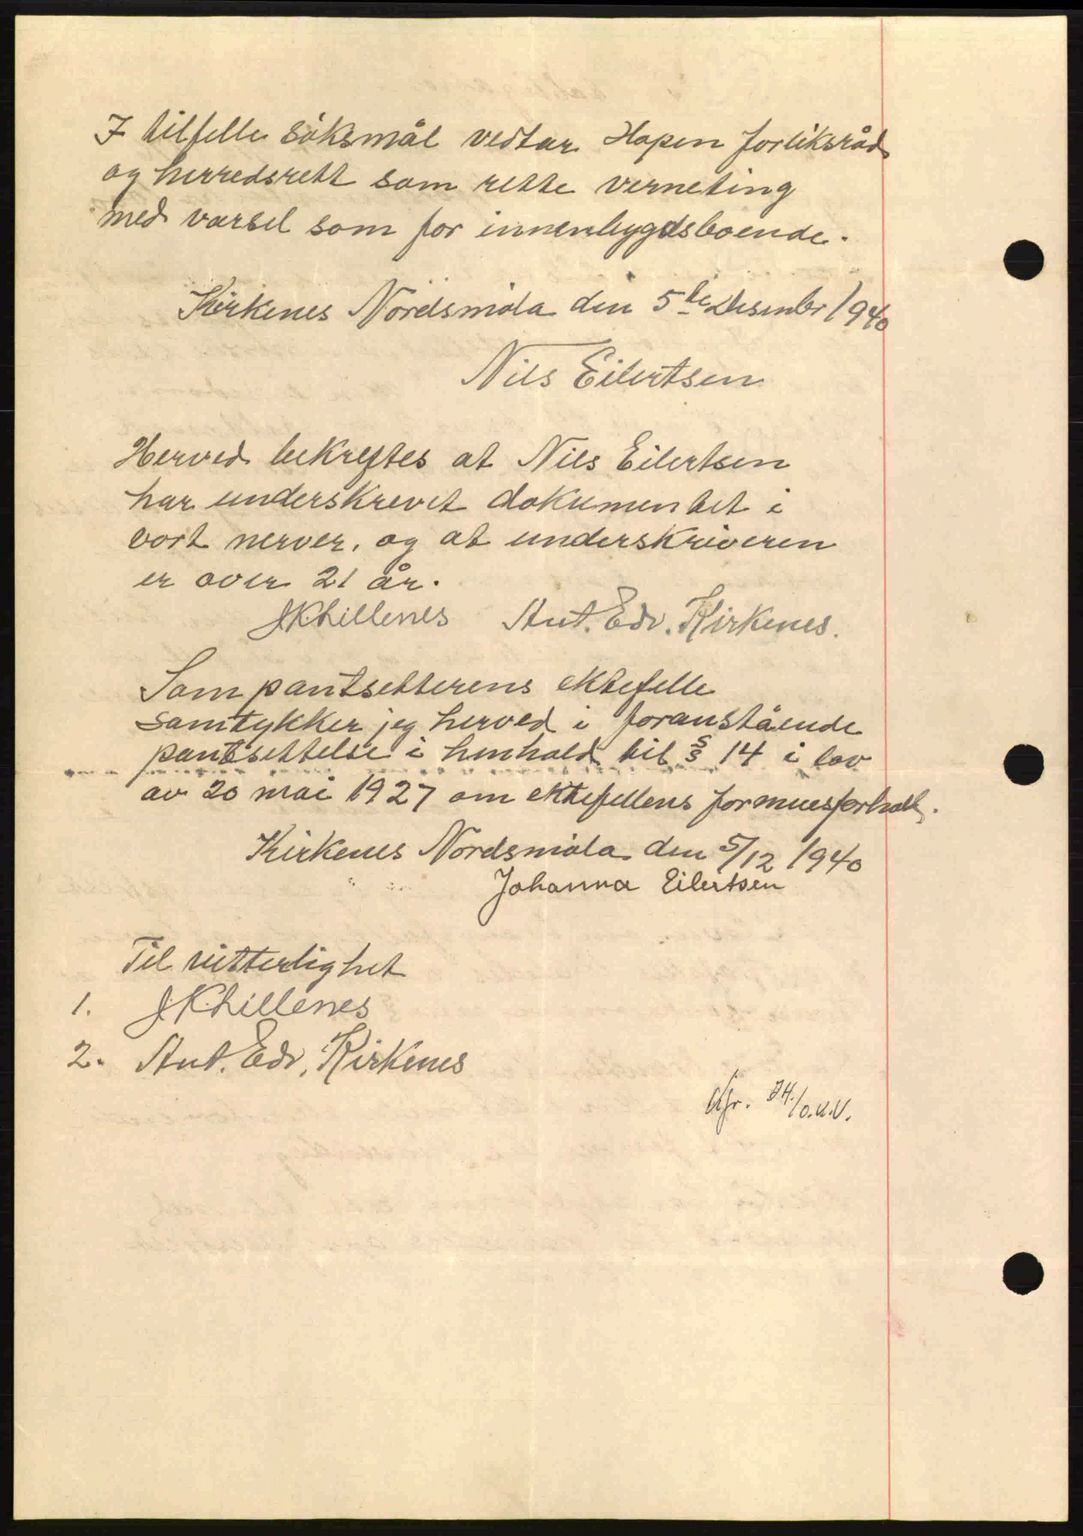 I tilfelle søksmål vedtar Hopen forliksråd
og herredsrett som rette verneting
med varsel som for innenbygdsboende.
Kirkenes Nordsmøla den 5te Desember 1940
Nils Eilertsen
Herved bekreftes at Nils Eilertsen
har underskrevet dokumentet i
vort nerver, og at underskriveren
er over 21 år.
JKLillenes Ant. Edv. Kirkenes.
Som pantsetterens ektefelle
samtykker jeg herved i foranstående
pantsettelse i henhold til § 14 i lov
av 20 mai 1927 om ektefellens formuesforhold.
Kirkenes Nordsmøla den 5/12 1940
Johanna Eilertsen
Til vitterlighet
1. JKLillenes
2. Ant. Edv. Kirkenes